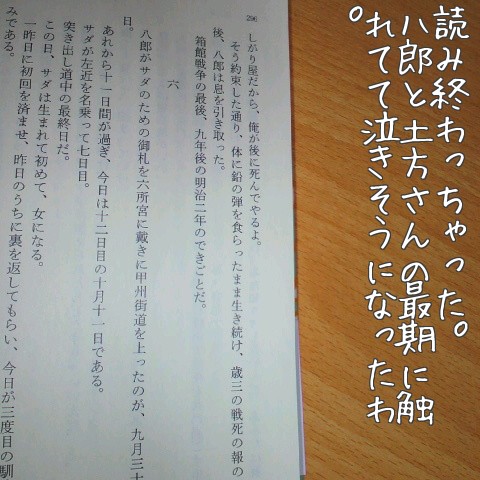 読み終わっちゃった。
八郎と土方さんの最期に触
れてて泣きそうになったわ
。
296
しがり屋だから、俺が後に死んでやるよ。
そう約束した通り、体に鉛の弾を食らったまま生き続け、歳三の戦死の報の
後、八郎は息を引き取った。
箱館戦争の最後、九年後の明治二年のできごとだ。
六
八郎がサダのための御札を六所宮に戴きに甲州街道を上ったのが、九月三十
日。
あれから十一日間が過ぎ、今日は十二日目の十月十一日である。
サダが左近を名乗って七日目。
突き出し道中の最終日だ。
この日、サダは生まれて初めて、女になる。
一昨日に初回を済ませ、昨日のうちに裏を返してもらい、今日が三度目の馴
みである。